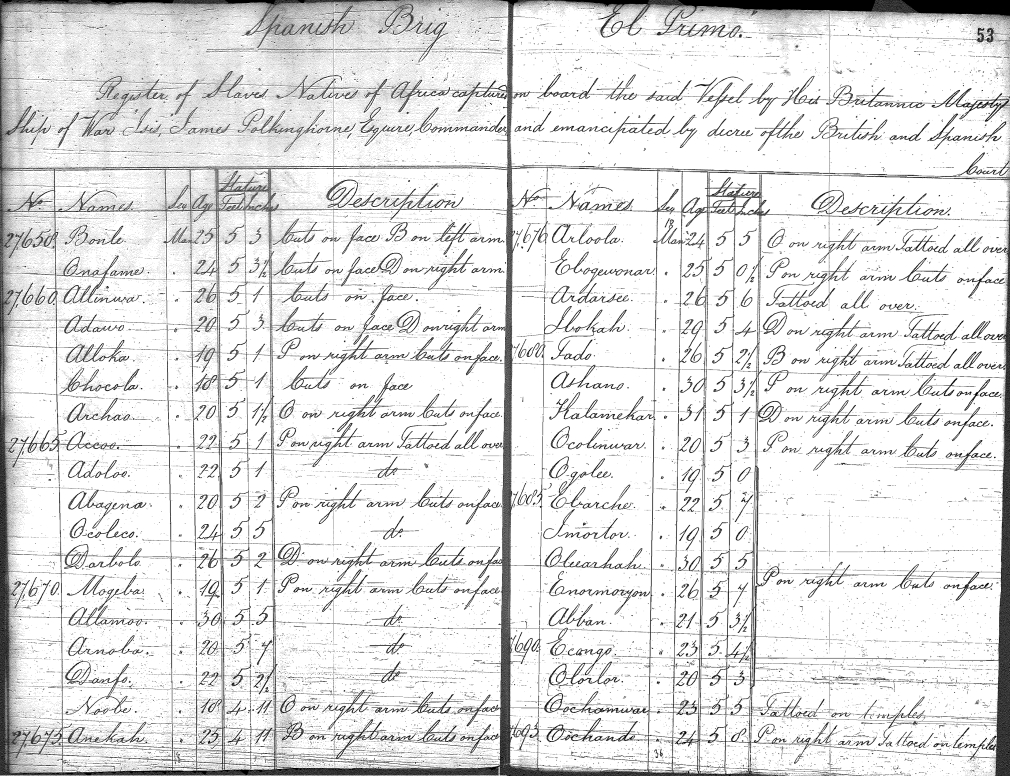 Spanish Brig
El Primo.
53
Register of Slaves Natives of Africa captured on board the said Vessel by Her Britannic Majesty's
Ship of War Isis, James Polkinghorne, Esquire, Commander and emancipated by decree of the British and Spanish
Court
No. Names. Sex Age Stature Feet Inches Description
27,658. Bonle Man 25 5 3 Cuts on face B on left arm.
Onafame. . 24 5 3½ Cuts on face D on right arm.
27,660. Allinwa. . 26 5 1 Cuts on face.
Adawo. . 20 5 3 Cuts on face D on right arm
Alloka. . 19 5 1 P on right arm Cuts on face.
Chocola. . 18 5 1 Cuts on face
Archao. . 20 5 1½ O on right arm Cuts on face.
27,665. Accoo. . 22 5 1 P on right arm Tattoed all over
Adoloo. . 22 5 1 do
Abagena. . 20 5 2 P on right arm Cuts on face
Ocoleco. . 24 5 5 do
Darbolo. . 26 5 2 D on right arm Cuts on face
27,670. Mogeba. . 19 5 1 P on right arm Cuts on face
Allamoo. . 30 5 5 do
Arnoba. . 20 5 7 do
Danfo. . 22 5 2½ do
Noobe. . 18 4 11 O on right arm Cuts on face
27,675. Anekah. . 25 4 11 B on right arm Cuts on face
18
No. Names. Sex Age Stature Feet Inches Description.
27,676. Arloola. Man 24 5 5 O on right arm Tattoed all over
Ebogewonar. . 25 5 0½ P on right arm Cuts on face
Ardarsee. . 26 5 6 Tattoed all over.
Ibokah. . 29 5 4 D on right arm Tattoed all over
7680. Fado. . 26 5 2½ B on right arm Tattoed all over
Ashano. . 30 5 3½ P on right arm Cuts on face.
Halamekar. . 31 5 1 D on right arm Cuts on face.
Ocolinwar. . 20 5 3 P on right arm Cuts on face.
Ogolee. . 19 5 0
7685. Ebarche. . 22 5 7
Imortor. . 19 5 0
Oleearhah. . 30 5 5
P on right arm Cuts on face.
Enormoryon. . 26 5 7
Abban. . 21 5 3½
7690. Ecango. . 23 5 4½
Olorlor. . 20 5 3
Oochamwar. . 23 5 5 Tattoed on temples
7693. Oochando. . 24 5 8 P on right arm Tattoed on temples
36